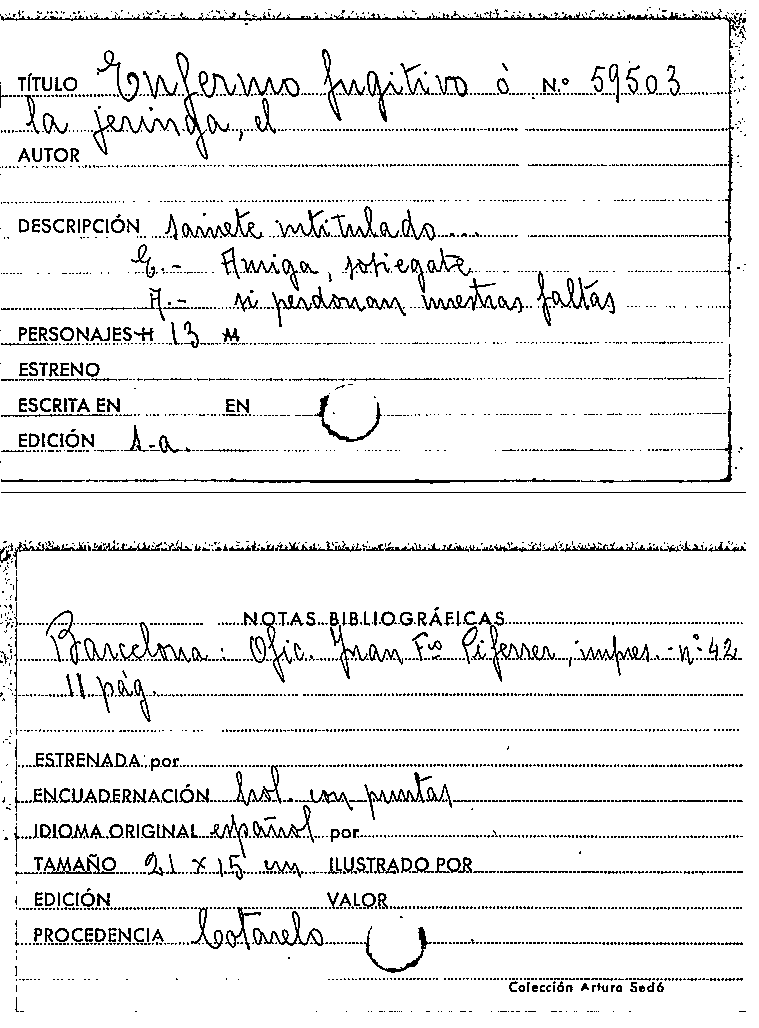 TÍTULO Enfermo fugitivo ó N.º 59503
la jeringa, el
AUTOR
DESCRIPCIÓN sainete intitulado...
E.- Amiga, sosiegate
A.- si perdonan nuestras faltas
PERSONAJES H 13 M
ESTRENO
ESCRITA EN EN
EDICIÓN s.a.
NOTAS BIBLIOGRÁFICAS
Barcelona: Ofic. Juan Fco Piferrer, impres. - nº 42
11 pág.
ESTRENADA por
ENCUADERNACIÓN hol. con puntas
IDIOMA ORIGINAL español por
TAMAÑO 21 x 15 cm ILUSTRADO POR
EDICIÓN VALOR
PROCEDENCIA Cotarelo
Colección Arturo Sedó